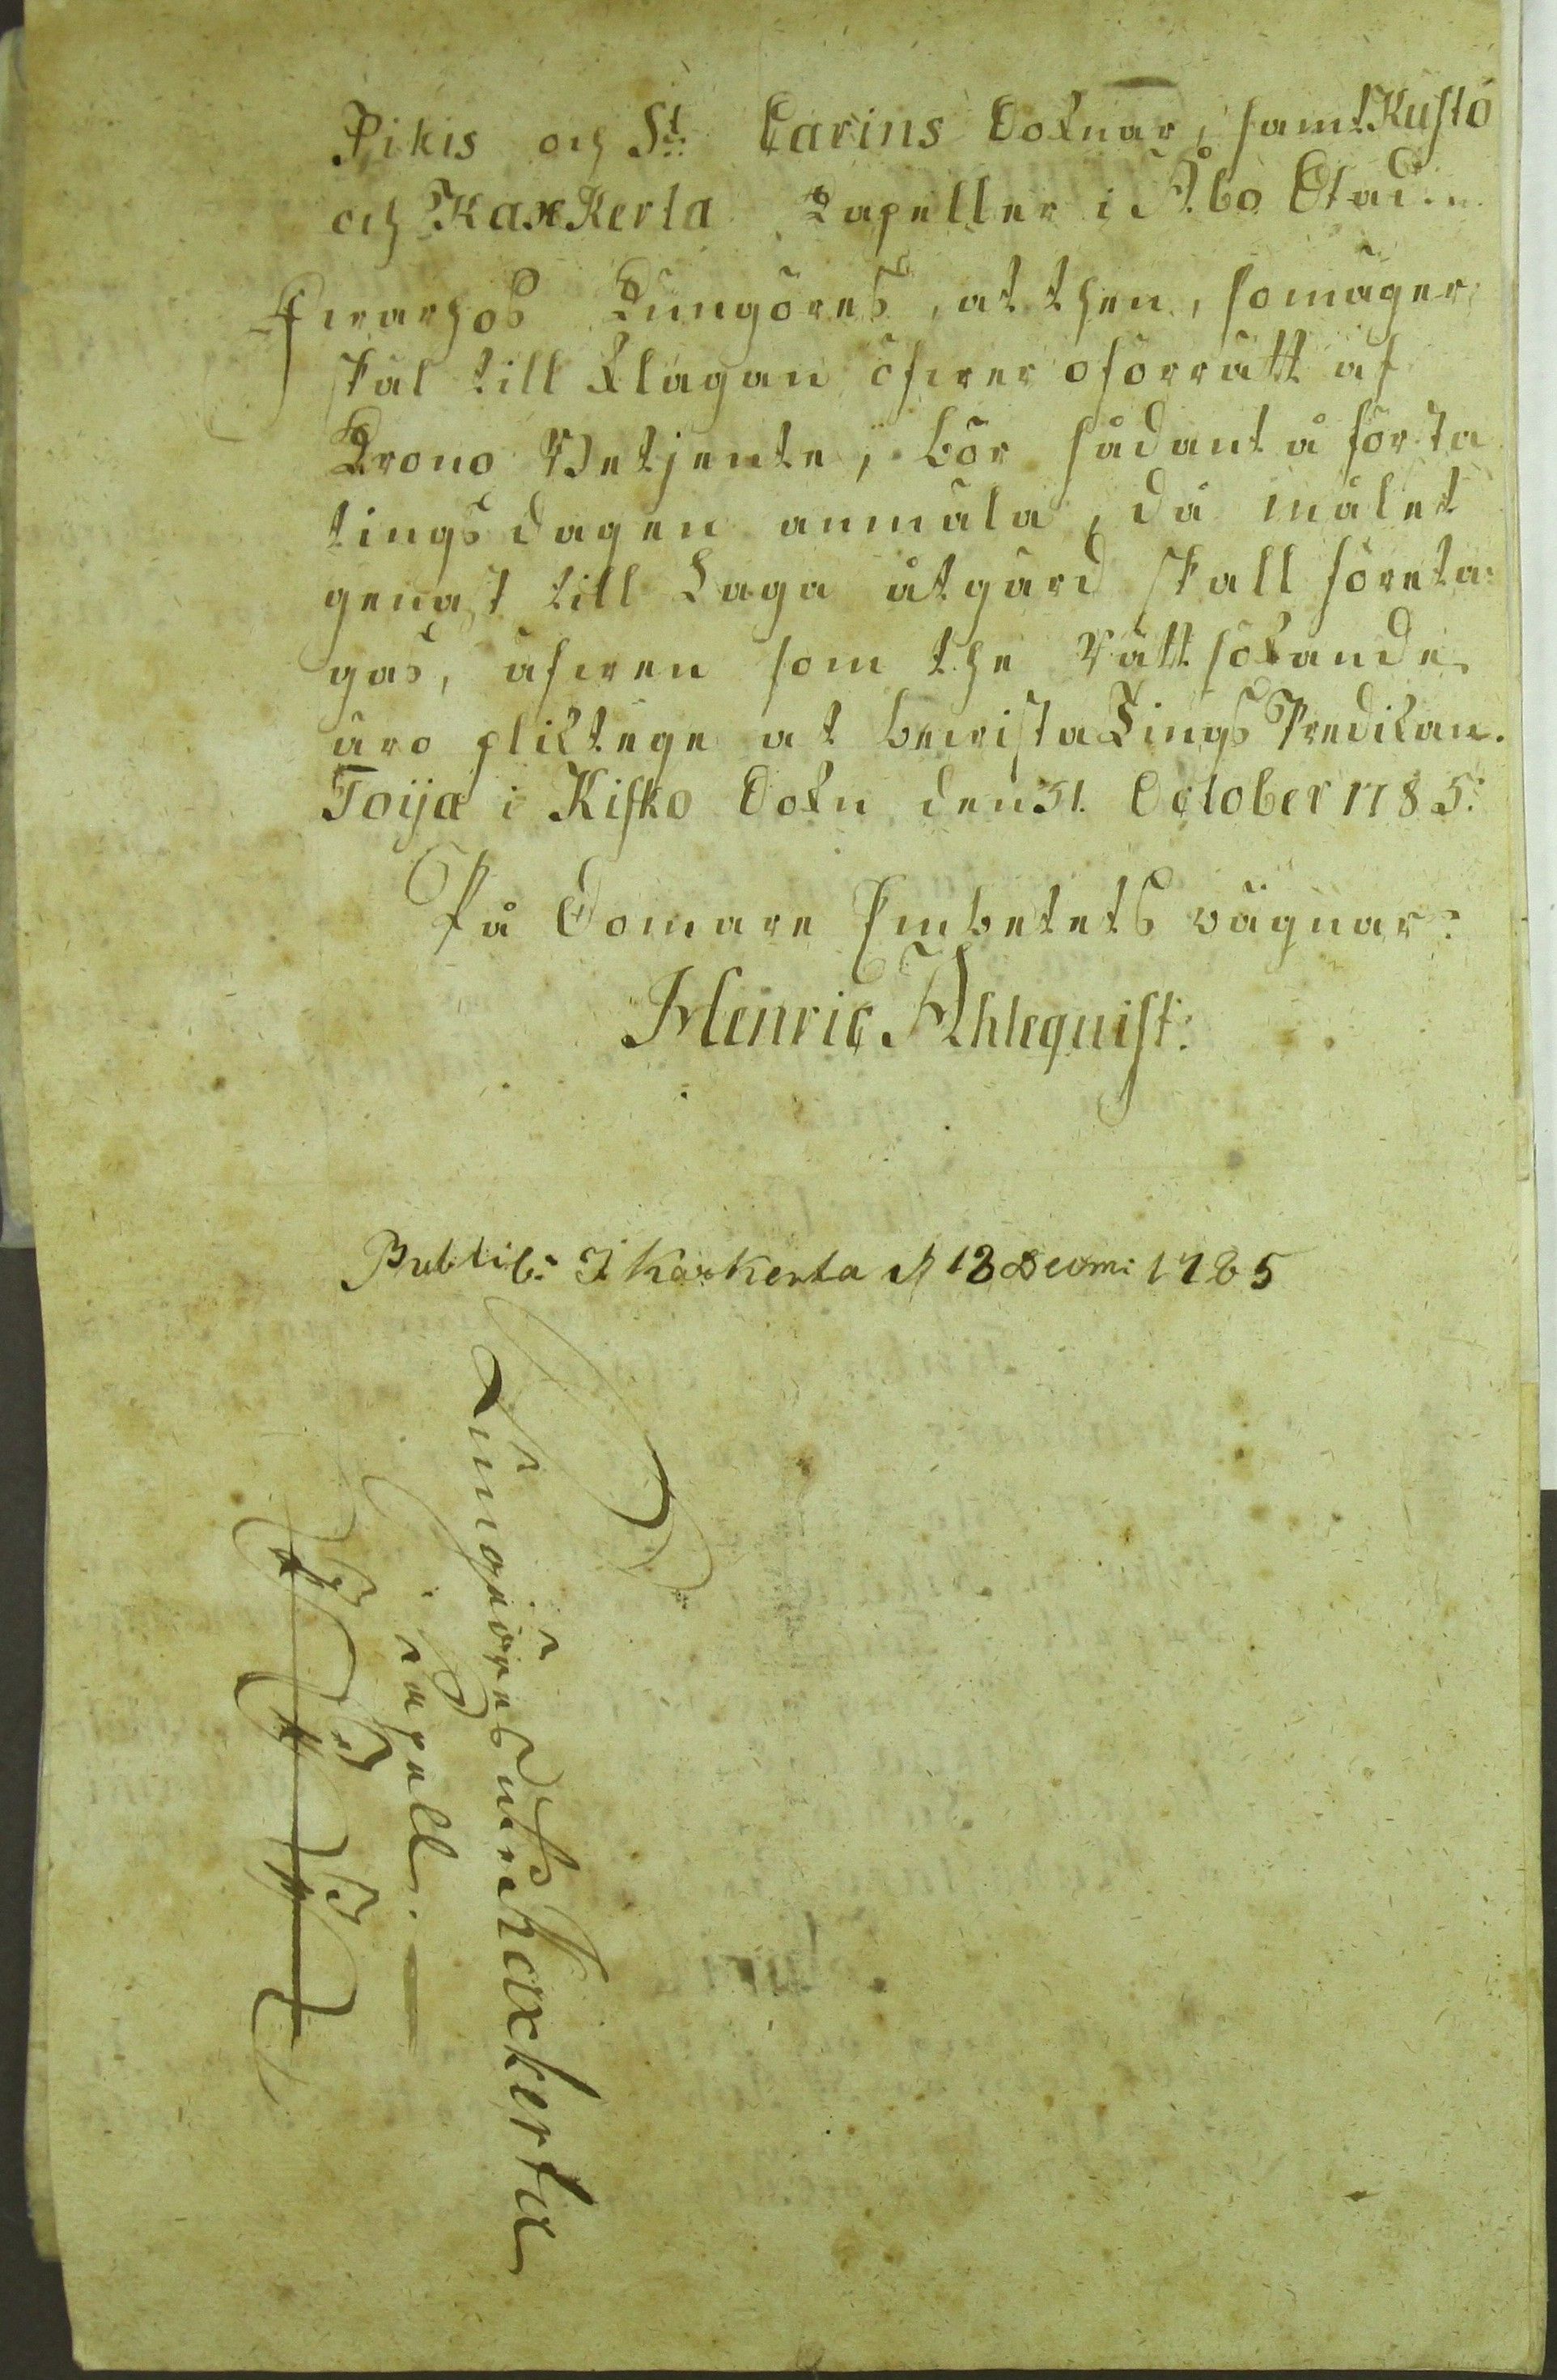 Pikis och St: Carins Soknar, samt Kustö
och Kaxkerta Capeller i Åbo Stad.
Hwarhos Kungöres, at then, som äger
skäl till klagan öfwer oförrätt af
Krono Betjente, bör sådant å första
tingsdagen anmäla, då målet
genast till Laga åtgärd skall företa-
gas, äfwen som the Rättsökande
äro pliktege at bewista Tings Predikan.
Toija i Kisko Sokn den 31. October 1785.
På Domare Embetets vägnar:
Henric Ahlequist:
Public: I Kaxkerta d 18 Decem: 1785
Kungöres uti Kaxkerta
Capell.